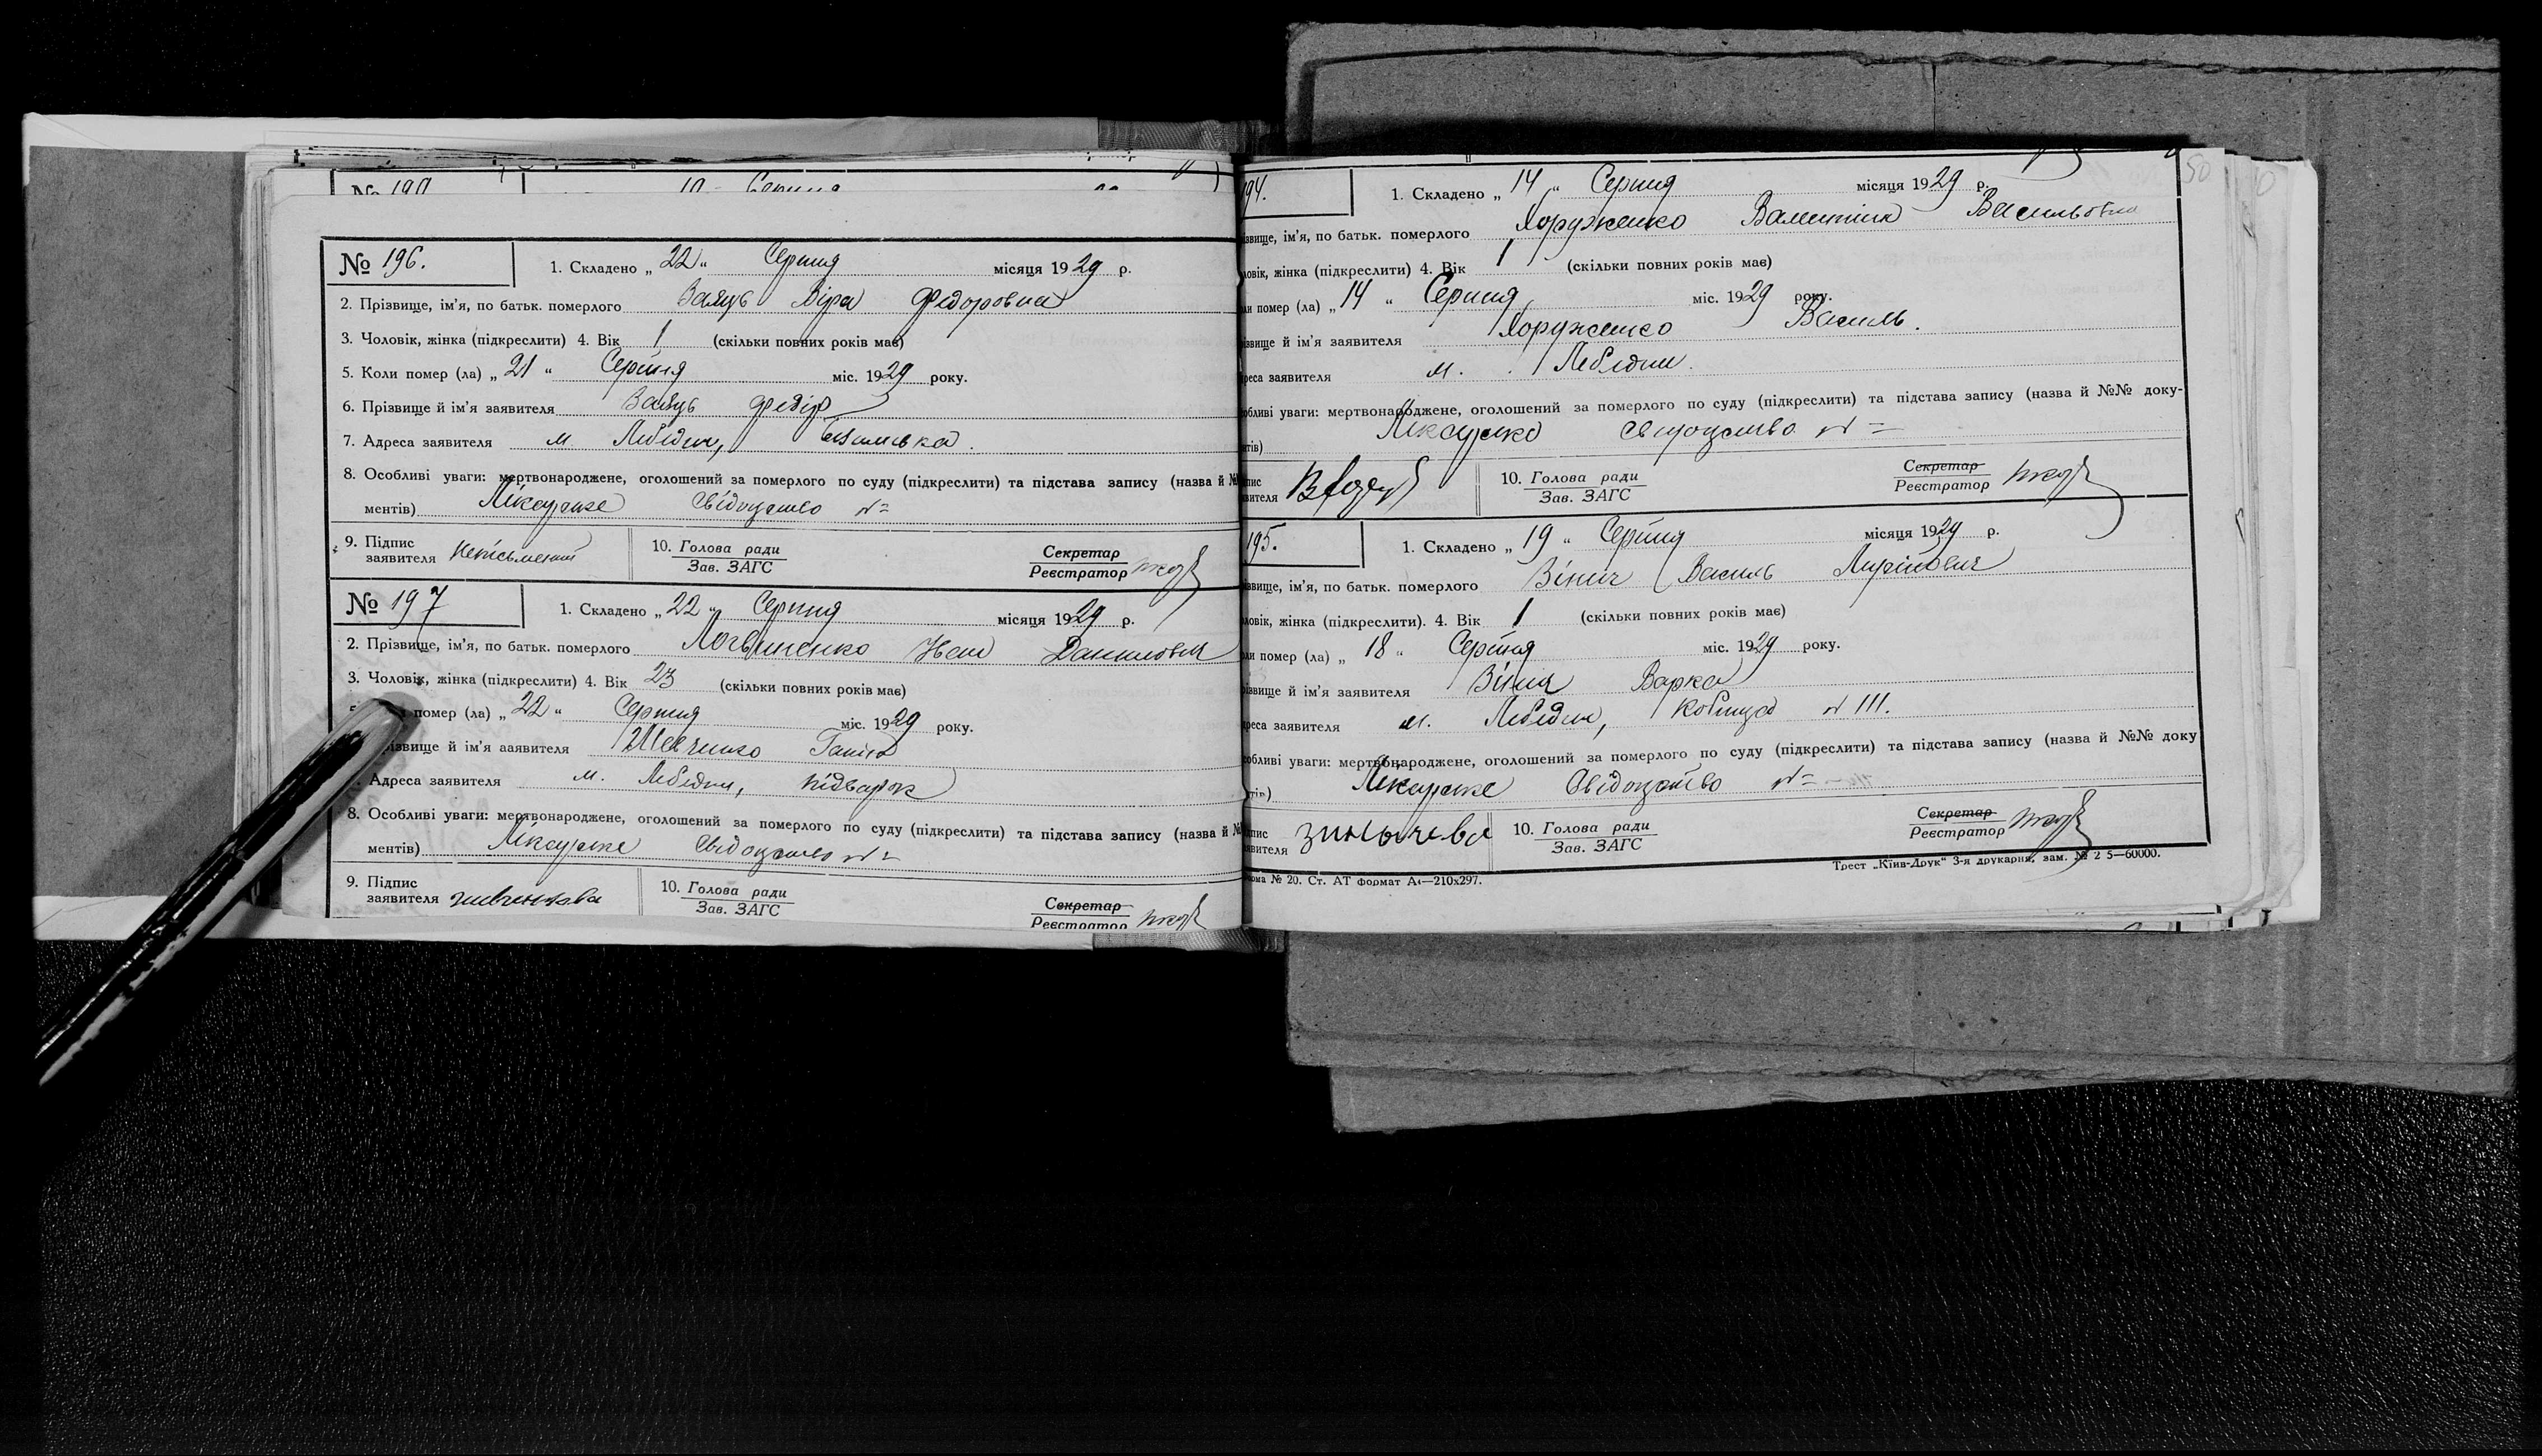 10 Серпня
№ 196.
1. Складено „ 22 “ Серпня місяця 1929 р.
2. Прізвище, ім'я, по батьк. померлого Заяць Віра Федоровна
3. Чоловік, жінка (підкреслити) 4. Вік 1 (скільки повних років має)
5. Коли помер (ла) „ 21 “ Серпня міс. 1929 року.
6. Прізвище й ім'я заявителя Заяць Федір
7. Адреса заявителя м. Лебедин,
8. Особливі уваги: мертвонароджене, оголошений за померлого по суду (підкреслити) та підстава запису (назва й №
ментів) Лікарське свідоцтво №=
9. Підпис заявителя Неписьменний
10. Голова ради
Зав. ЗАГС
Секретар
Реєстратор
№ 197
1. Складено „ 22 “ Серпня місяця 1929 р.
2. Прізвище, ім'я, по батьк. померлого Логвиненко Іван Данилович
3. Чоловік, жінка (підкреслити) 4. Вік 23 (скільки повних років має)
помер (ла) „ 22 “ Серпня міс. 1929 року.
різвище й ім'я аявителя Шевченко Ганна
Адреса заявителя м. Лебедин, підварок
8. Особливі уваги: мертвонароджене, оголошений за померлого по суду (підкреслити) та підстава запису (назва й №
ментів) Лікарське свідоцтво №=
9. Підпис заявителя
10. Голова ради
Зав. ЗАГС
Секретар
Реєстратор
50
94.
1. Складено „ 14 “ Серпня місяця 1929 р.
ізвище, ім'я, по батьк. померлого Хоруженко Валентина Васильовна
ловік, жінка (підкреслити) 4. Вік 1 (скільки повних років має)
ли помер (ла) „ 14 “ Серпня міс. 1929 року.
ізвище й ім'я заявителя Хоруженко Василь.
реса заявителя м. Лебедин.
обливі уваги: мертвонароджене, оголошений за померлого по суду (підкреслити) та підстава запису (назва й №№ доку-
нтів) Лікарське свідоцтво №=
пис
явителя
10. Голова ради
Зав. ЗАГС
Секретар
Реєстратор
195.
1. Складено „ 19 “ Серпня місяця 1929 р.
ізвище, ім'я, по батьк. померлого Зінич Василь
ловік, жінка (підкреслити). 4. Вік 1 (скільки повних років має)
ли помер (ла) „ 18 “ Серпня міс. 1929 року.
ізвище й ім'я заявителя Зінич Варка
дреса заявителя м. Лебедин, № 111.
собливі уваги: мертвонароджене, оголошений за померлого по суду (підкреслити) та підстава запису (назва й №№ доку
нтів) Лікарське свідоцтво №=
пис
явителя зинычева
10. Голова ради
Зав. ЗАГС
Секретар
Реєстратор
орма № 20. Ст. АТ формат А4—210х297.
Трест „Київ-Друк“ 3-я друкарня, зам. № 2 5—60000.